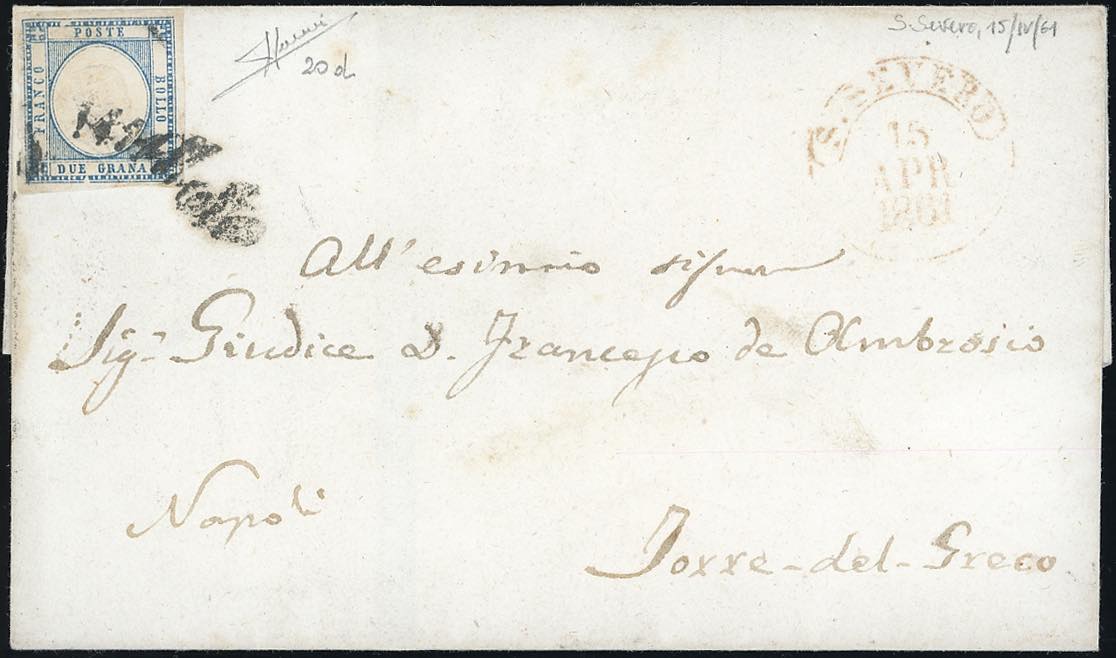 POSTE
FRANCO
BOLLO
DUE GRANA
20d
S. Severo, 15/IV/61
S. SEVERO
15
APR
1861
All'esimio signore
Sig.r Giudice D. Francesco de Ambrosio
Napoli
Torre-del-Greco